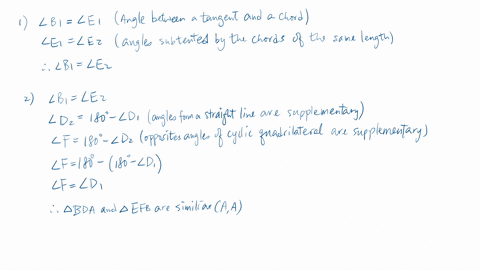 1) ∠B1 = ∠E1 (Angle between a tangent and a chord)
∠E1 = ∠E2 (angles subtented by the chords of the same length)
∴ ∠B1 = ∠E2
2) ∠B1 = ∠E2
∠D2 = 180° - ∠D1 (angles form a straight line are supplementary)
∠F = 180° - ∠D2 (opposites angles of cyclic quadrilateral are supplementary)
∠F = 180° - (180° - ∠D1)
∠F = ∠D1
∴ △BDA and △EFB are similiar (A,A)